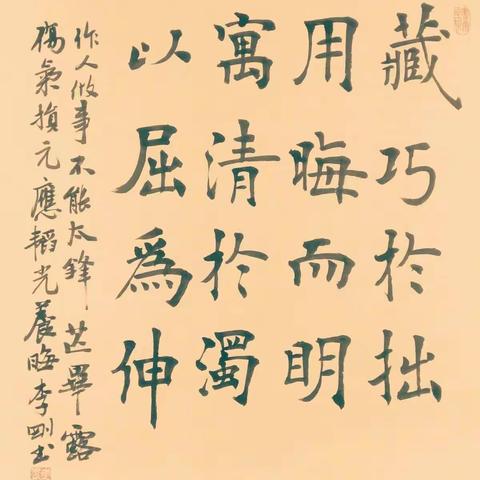 藏巧於拙
用晦而明
寓清於濁
以屈為伸
作人做事不能太鋒芒畢露
傷氣損元應韜光養晦李剛书